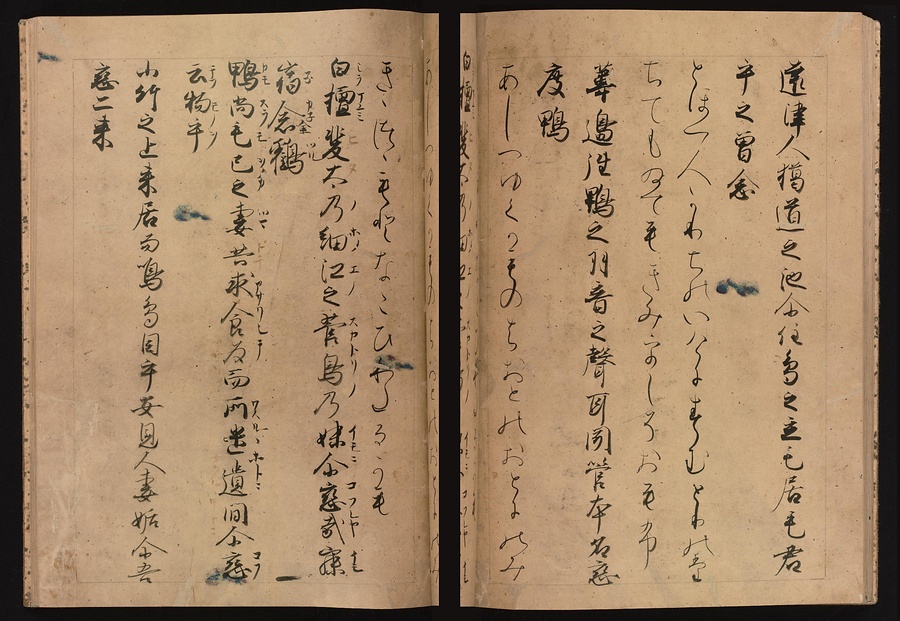 遠津人獦道之池尓住鳥之立毛居毛君
乎之曽念
とほつ人かりちのいけにすむとりのた
ちてもゐてもきみをしそおもふ
葦邊徃鴨之羽音之聲耳聞管本名戀
度鴨
あしへゆくかものはおとのおとにのみ
きゝつゝもとなこひわたるかも
白檀斐太乃細江之菅鳥乃妹尓戀哉寐
宿念鶴
鴨尚毛己之妻共求食為而所遺間尓戀
云物乎
小竹之上来居而鳴鳥目乎安見人妻姤尓吾
戀二来